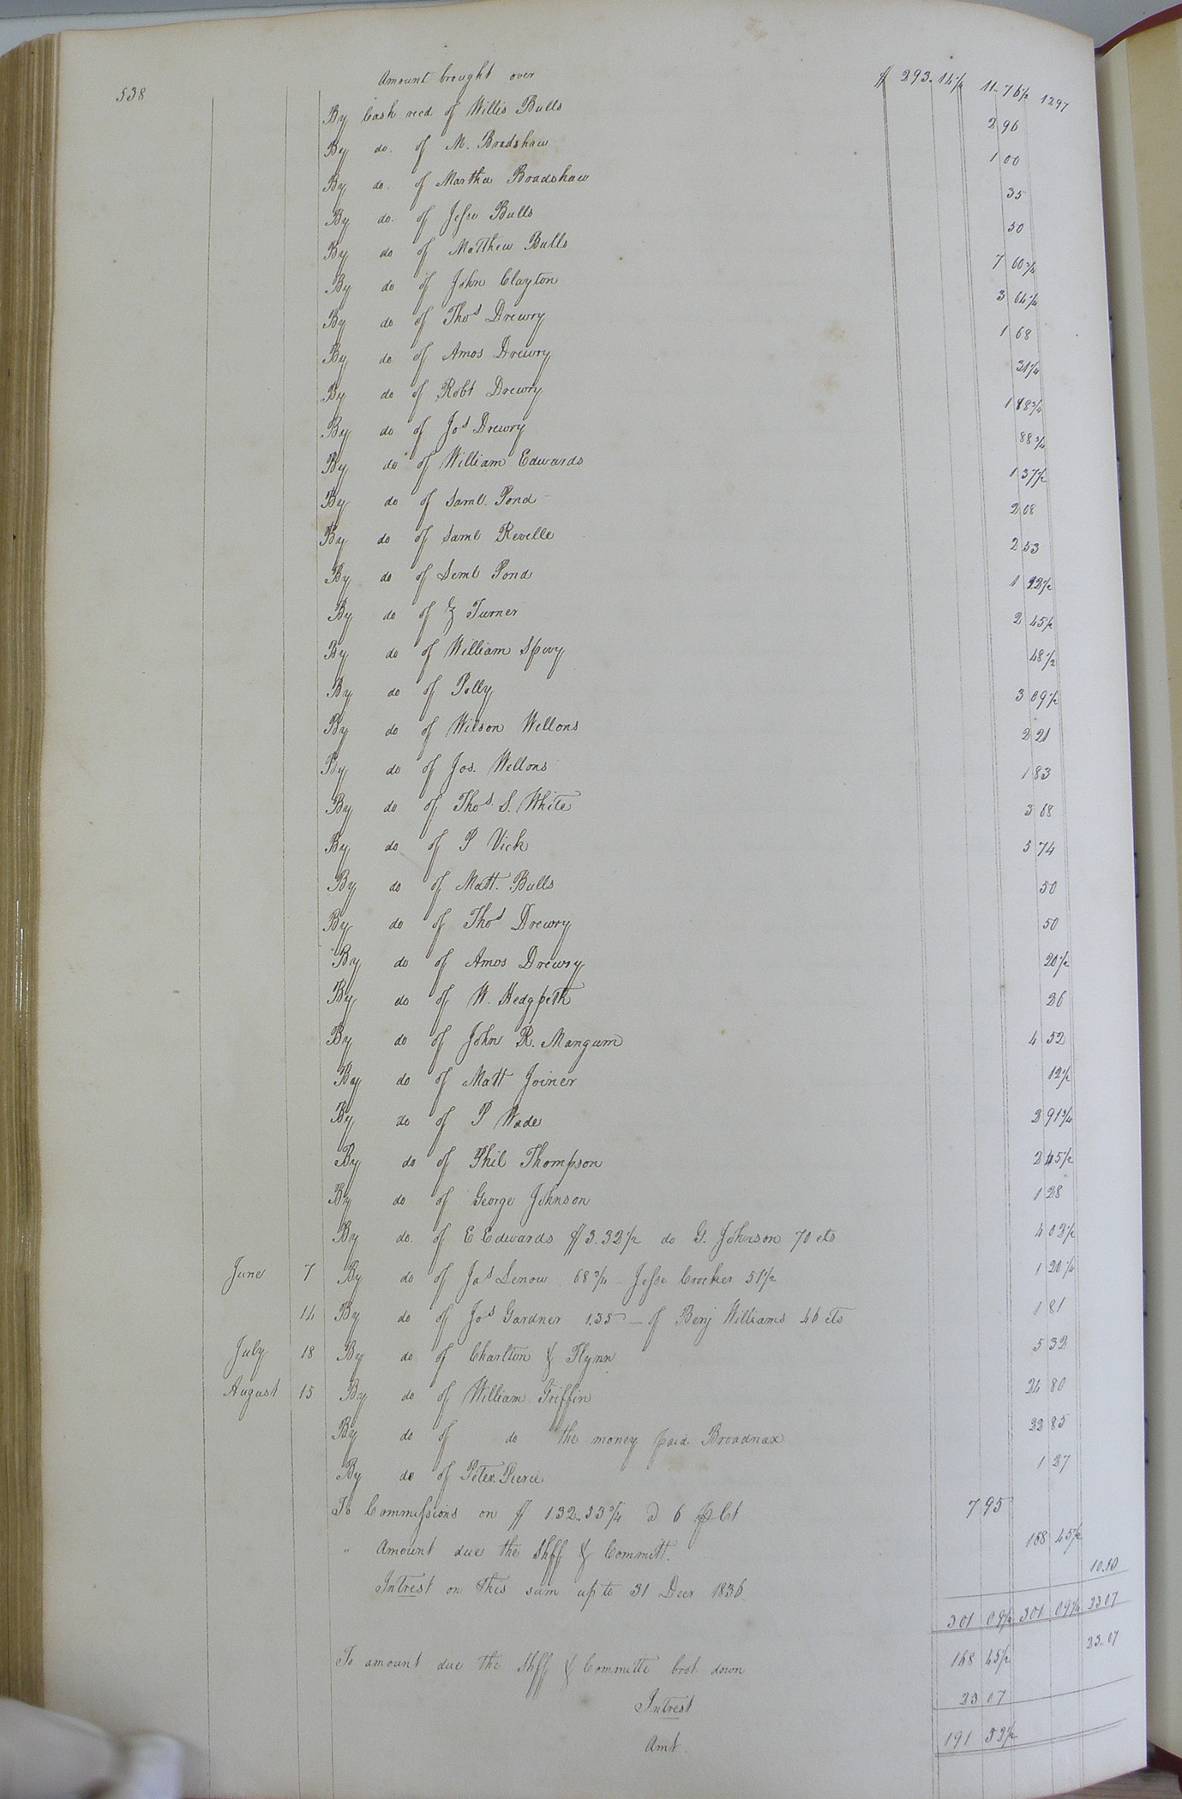 538
Amount brought over $ 293.14½ 11.76½ 1297
By Cash recd of Willis Bulls 2 96
By do. of M. Bradshaw 1 00
By do. of Martha Bradshaw 35
By do. of Jesse Bulls 50
By do of Matthew Bulls 7 60¾
By do of John Clayton 3 64¼
By do of Thos Drewry 1 68
By do of Amos Drewry 21¼
By do of Robt Drewry 1 88¾
By do of Jos Drewry 88¾
By do of William Edwards 1 37½
By do of Saml. Pond 2 08
By do of Saml Revelle 2 53
By do of Seml Pond 1 22½
By do of Turner 2 45½
By do of William Spivy 48½
By do of Polly 3 09½
By do of Wilson Wellons 2 21
By do of Jos. Wellons 1 83
By do of Thos. S. White 3 68
By do of P Vick 3 74
By do of Matt. Bulls 50
By do of Thos Drewry 50
By do of Amos Drewry 20½
By do of W. Hedgpeth 26
By do of John R. Mangum 4 52
By do of Matt Joiner 12½
By do of P Wade 2 91¾
By do of Phil Thompson 2 45½
By do of George Johnson 1 28
By do. of E Edwards $3.32½ do G. Johnson 70 cts 4 02½
June 7 By do of Jas Lenow 68¾ Jesse Crocker 51½ 1 20¼
14 By do of Jos Gardner 1.35 — of Benj Williams 46 cts 1 81
July 18 By do of Charlton & Flynn 5 32
August 15 By do of William Griffin 24 80
By do of do the money paid Broadnax 22 85
By do of Peter Pierce 1 27
To Commissions on $ 132.33¾ @ 6 p Ct 7 95
" Amount due the Shff & Committ. 168 45½
Intrest on this sum up to 31 Decr 1836 10.10
301 09½ 301 09½ 23 07
To amount due the Shff & Committe brot down 168 45½ 23.07
Intrest 23 07
Amt 191 52½